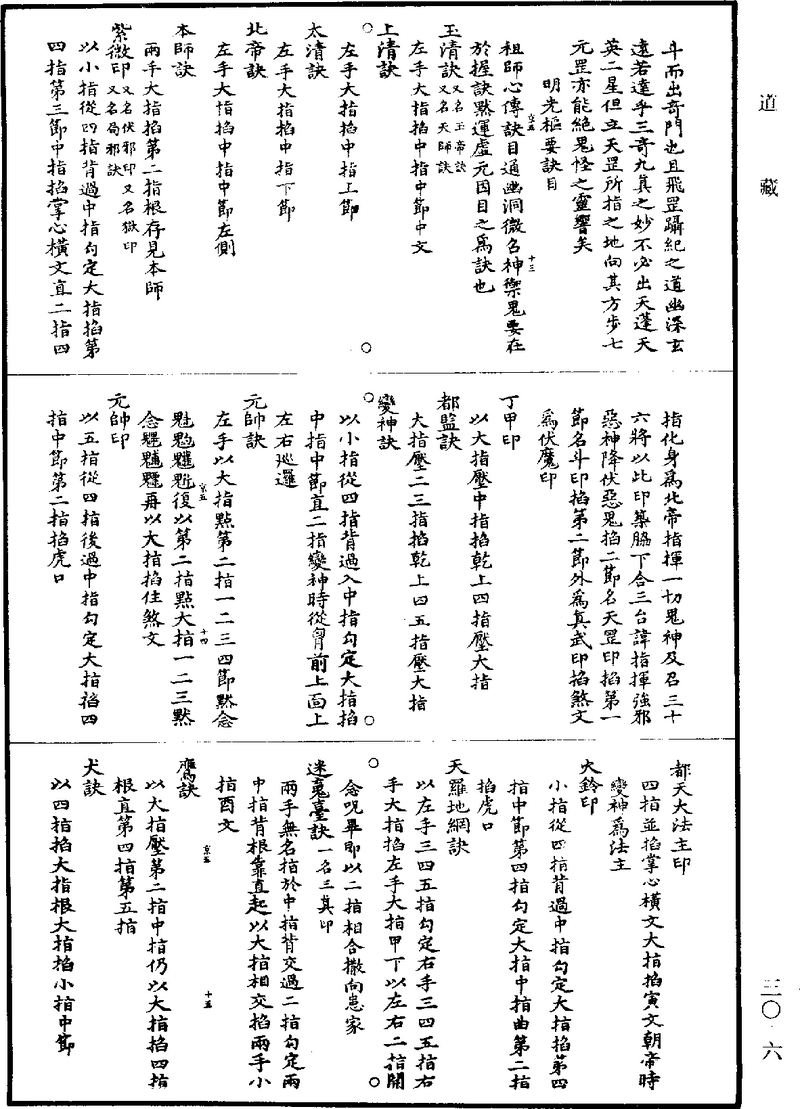 道藏
三〇·六
斗而出奇門也且飛罡躡紀之道幽深玄
遠若達乎三奇九真之妙不必出天蓬天
英二星但立天罡所指之地向其方步七
元罡亦能絕鬼怪之靈響矣
明光樞要訣目
京五 十三
祖師心傳訣目通幽洞微名神禦鬼要在
於握訣默運虛元因目之為訣也
玉清訣又名玉帝訣又名天師訣
左手大指掐中指中節中文
上清訣
左手大指掐中指上節
太清訣
左手大指掐中指下節
北帝訣
左手大指掐中指中節左側
本師訣
兩手大指掐第二指根存見本師
紫微印又名伏邪印又名獄印又名局邪訣
以小指從四指背過中指勾定大指掐第
四指第三節中指掐掌心橫文直二指四
指化身為北帝指揮一切鬼神及召三十
六將以此印築脇下合三台諱指揮強邪
惡神降伏惡鬼掐二節名天罡印掐第一
節名斗印掐第二節外為真武印掐煞文
為伏魔印
丁甲印
以大指壓中指掐乾上四指壓大指
都監訣
大指壓二三指掐乾上四五指壓大指
變神訣
以小指從四指背過入中指勾定大指掐
中指中節直二指變神時從胷前上面上
左右巡邏
元帥訣
左手以大指點第二指一二三四節默念
復以第二指點大指一二三默
京五 十四
念再以大指掐住煞文
元帥印
以五指從四指後過中指勾定大指掐四
指中節第二指掐虎口
都天大法主印
四指並掐掌心橫文大指掐寅文朝帝時
變神為法主
火鈴印
小指從四指背過中指勾定大指掐第四
指中節第四指勾定大指中指曲第二指
掐虎口
天羅地網訣
以左手三四五指勾定右手三四五指右
手大指掐左手大指甲下以左右二指開
念呪畢即以二指相合撒向患家
迷䰟臺訣一名三真印
兩手無名指於中指背交過二指勾定兩
中指背根靠直起以大指相交掐兩手小
指酉文
京五 十五
鷹訣
以大指壓第二指中指仍以大指掐四指
根直第四指第五指
犬訣
以四指掐大指根大指掐小指中節